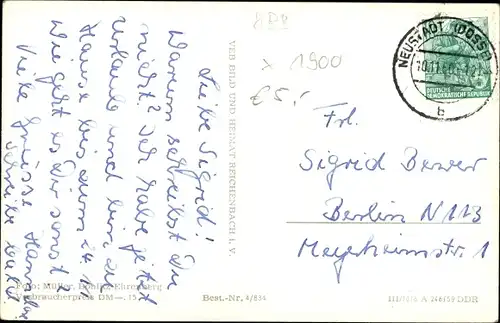 Liebe Sigrid!
Warum schreibst Du
nicht? Ich habe jetzt
Urlaub und bin zu
Hause bis zum 24. 11.
Wie geht es Dir sonst?
Viele Grüsse
Schreibe bald
VEB BILD UND HEIMAT REICHENBACH I. V.
1900
€ 5,-
NEUSTADT (DOSSE)
b
DEUTSCHE
DEMOKRATISCHE REPUBLIK
Frl.
Sigrid
Berlin N 113
Meyerheimstr. 1
Foto: Müller, Ehrenberg
Verbraucherpreis DM —,15
Best.-Nr. 4/834
A 246/59 DDR